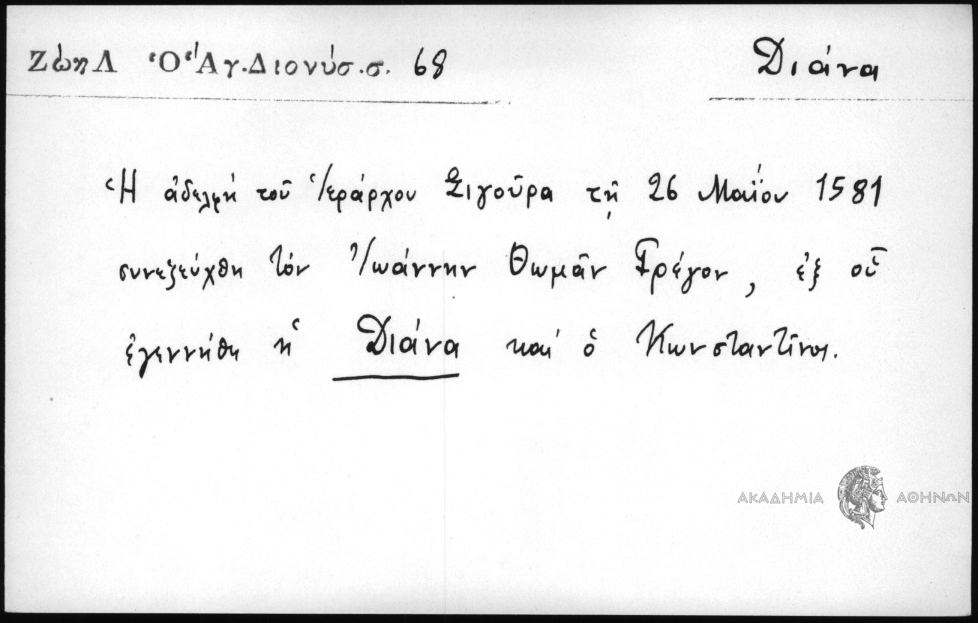 Ζώη Λ Ὁ Ἅγ. Διονύσ. σ. 68
Διάνα
Ἡ ἀδελφή τοῦ Ἱεράρχου Σιγοῦρα τῇ 26 Μαΐου 1581
συνεζεύχθη τόν Ἰωάννην Θωμᾶν Γρέγον, ἐξ οὗ
ἐγεννήθη ἡ Διάνα καί ὁ Κωνσταντῖνος.
ΑΚΑΔΗΜΙΑ ΑΘΗΝΩΝ